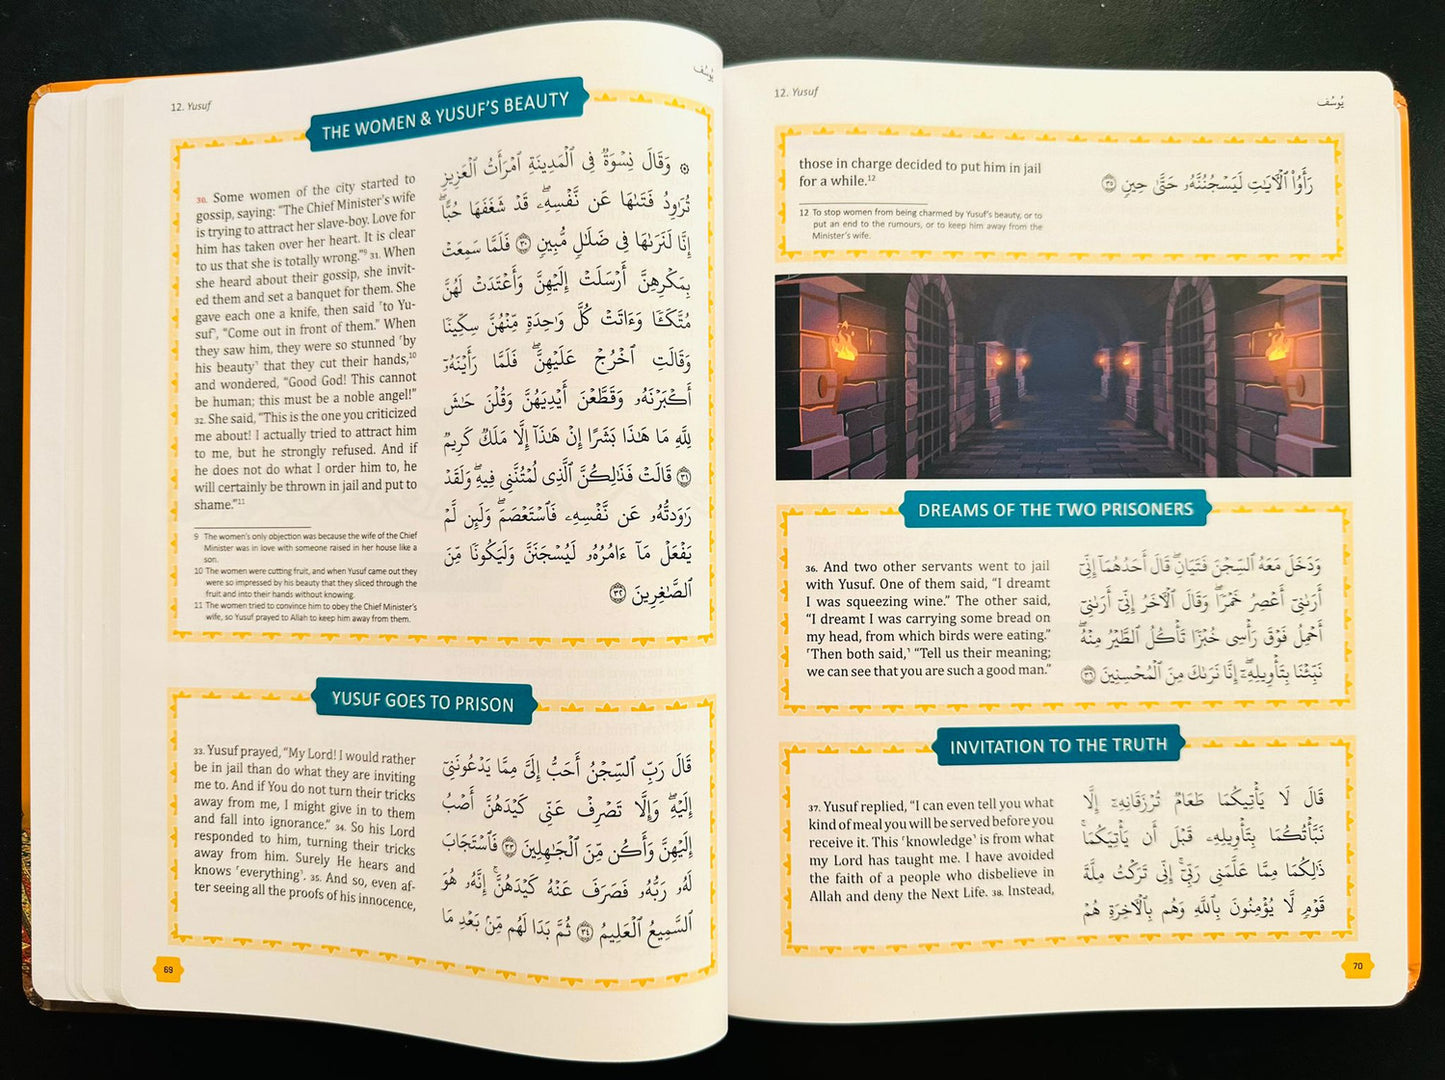 12. Yusuf
يُوسُف
THE WOMEN & YUSUF'S BEAUTY
30. Some women of the city started to
gossip, saying: “The Chief Minister's wife
is trying to attract her slave-boy. Love for
him has taken over her heart. It is clear
to us that she is totally wrong.”9 31. When
she heard about their gossip, she invit-
ed them and set a banquet for them. She
gave each one a knife, then said ˹to Yu-
suf˺, “Come out in front of them.” When
they saw him, they were so stunned ˹by
his beauty˺ that they cut their hands,10
and wondered, “Good God! This cannot
be human; this must be a noble angel!”
32. She said, “This is the one you criticized
me about! I actually tried to attract him
to me, but he strongly refused. And if
he does not do what I order him to, he
will certainly be thrown in jail and put to
shame.”11
9 The women's only objection was because the wife of the Chief
Minister was in love with someone raised in her house like a
son.
10 The women were cutting fruit, and when Yusuf came out they
were so impressed by his beauty that they sliced through the
fruit and into their hands without knowing.
11 The women tried to convince him to obey the Chief Minister's
wife, so Yusuf prayed to Allah to keep him away from them.
۞ وَقَالَ نِسۡوَةٞ فِي ٱلۡمَدِينَةِ ٱمۡرَأَتُ ٱلۡعَزِيزِ
تُرَٰوِدُ فَتَىٰهَا عَن نَّفۡسِهِۦۖ قَدۡ شَغَفَهَا حُبًّاۖ
إِنَّا لَنَرَىٰهَا فِي ضَلَٰلٖ مُّبِينٖ ٣٠ فَلَمَّا سَمِعَتۡ
بِمَكۡرِهِنَّ أَرۡسَلَتۡ إِلَيۡهِنَّ وَأَعۡتَدَتۡ لَهُنَّ
مُتَّكَـٔٗا وَءَاتَتۡ كُلَّ وَٰحِدَةٖ مِّنۡهُنَّ سِكِّينٗا
وَقَالَتِ ٱخۡرُجۡ عَلَيۡهِنَّۖ فَلَمَّا رَأَيۡنَهُۥٓ
أَكۡبَرۡنَهُۥ وَقَطَّعۡنَ أَيۡدِيَهُنَّ وَقُلۡنَ حَٰشَ
لِلَّهِ مَا هَٰذَا بَشَرًا إِنۡ هَٰذَآ إِلَّا مَلَكٞ كَرِيمٞ
٣١ قَالَتۡ فَذَٰلِكُنَّ ٱلَّذِي لُمۡتُنَّنِي فِيهِۖ وَلَقَدۡ
رَٰوَدتُّهُۥ عَن نَّفۡسِهِۦ فَٱسۡتَعۡصَمَۖ وَلَئِن لَّمۡ
يَفۡعَلۡ مَآ ءَامُرُهُۥ لَيُسۡجَنَنَّ وَلَيَكُونٗا مِّنَ
ٱلصَّٰغِرِينَ ٣٢
YUSUF GOES TO PRISON
33. Yusuf prayed, “My Lord! I would rather
be in jail than do what they are inviting
me to. And if You do not turn their tricks
away from me, I might give in to them
and fall into ignorance.” 34. So his Lord
responded to him, turning their tricks
away from him. Surely He hears and
knows ˹everything˺. 35. And so, even af-
ter seeing all the proofs of his innocence,
قَالَ رَبِّ ٱلسِّجۡنُ أَحَبُّ إِلَيَّ مِمَّا يَدۡعُونَنِيٓ
إِلَيۡهِۖ وَإِلَّا تَصۡرِفۡ عَنِّي كَيۡدَهُنَّ أَصۡبُ
إِلَيۡهِنَّ وَأَكُن مِّنَ ٱلۡجَٰهِلِينَ ٣٣ فَٱسۡتَجَابَ
لَهُۥ رَبُّهُۥ فَصَرَفَ عَنۡهُ كَيۡدَهُنَّۚ إِنَّهُۥ هُوَ
ٱلسَّمِيعُ ٱلۡعَلِيمُ ٣٤ ثُمَّ بَدَا لَهُم مِّنۢ بَعۡدِ مَا
69
12. Yusuf
يُوسُف
those in charge decided to put him in jail
for a while.12
12 To stop women from being charmed by Yusuf's beauty, or to
put an end to the rumours, or to keep him away from the
Minister's wife.
رَأَوُاْ ٱلۡأٓيَٰتِ لَيَسۡجُنُنَّهُۥ حَتَّىٰ حِينٖ ٣٥
DREAMS OF THE TWO PRISONERS
36. And two other servants went to jail
with Yusuf. One of them said, “I dreamt
I was squeezing wine.” The other said,
“I dreamt I was carrying some bread on
my head, from which birds were eating.”
˹Then both said,˺ “Tell us their meaning;
we can see that you are such a good man.”
وَدَخَلَ مَعَهُ ٱلسِّجۡنَ فَتَيَانِۖ قَالَ أَحَدُهُمَآ إِنِّيٓ
أَرَىٰنِيٓ أَعۡصِرُ خَمۡرٗاۖ وَقَالَ ٱلۡأٓخَرُ إِنِّيٓ أَرَىٰنِيٓ
أَحۡمِلُ فَوۡقَ رَأۡسِي خُبۡزٗا تَأۡكُلُ ٱلطَّيۡرُ مِنۡهُۖ
نَبِّئۡنَا بِتَأۡوِيلِهِۦٓۖ إِنَّا نَرَىٰكَ مِنَ ٱلۡمُحۡسِنِينَ ٣٦
INVITATION TO THE TRUTH
37. Yusuf replied, “I can even tell you what
kind of meal you will be served before you
receive it. This ˹knowledge˺ is from what
my Lord has taught me. I have avoided
the faith of a people who disbelieve in
Allah and deny the Next Life. 38. Instead,
قَالَ لَا يَأۡتِيكُمَا طَعَامٞ تُرۡزَقَانِهِۦٓ إِلَّا
نَبَّأۡتُكُمَا بِتَأۡوِيلِهِۦ قَبۡلَ أَن يَأۡتِيَكُمَاۚ
ذَٰلِكُمَا مِمَّا عَلَّمَنِي رَبِّيٓۚ إِنِّي تَرَكۡتُ مِلَّةَ
قَوۡمٖ لَّا يُؤۡمِنُونَ بِٱللَّهِ وَهُم بِٱلۡأٓخِرَةِ هُمۡ
70